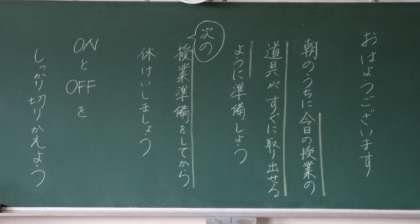 おはようございます
朝のうちに今日の授業の
道具がすぐに取り出せる
ように準備しよう
次の
授業準備をしてから
休けいしましょう
ONとOFFを
しっかり切りかえよう